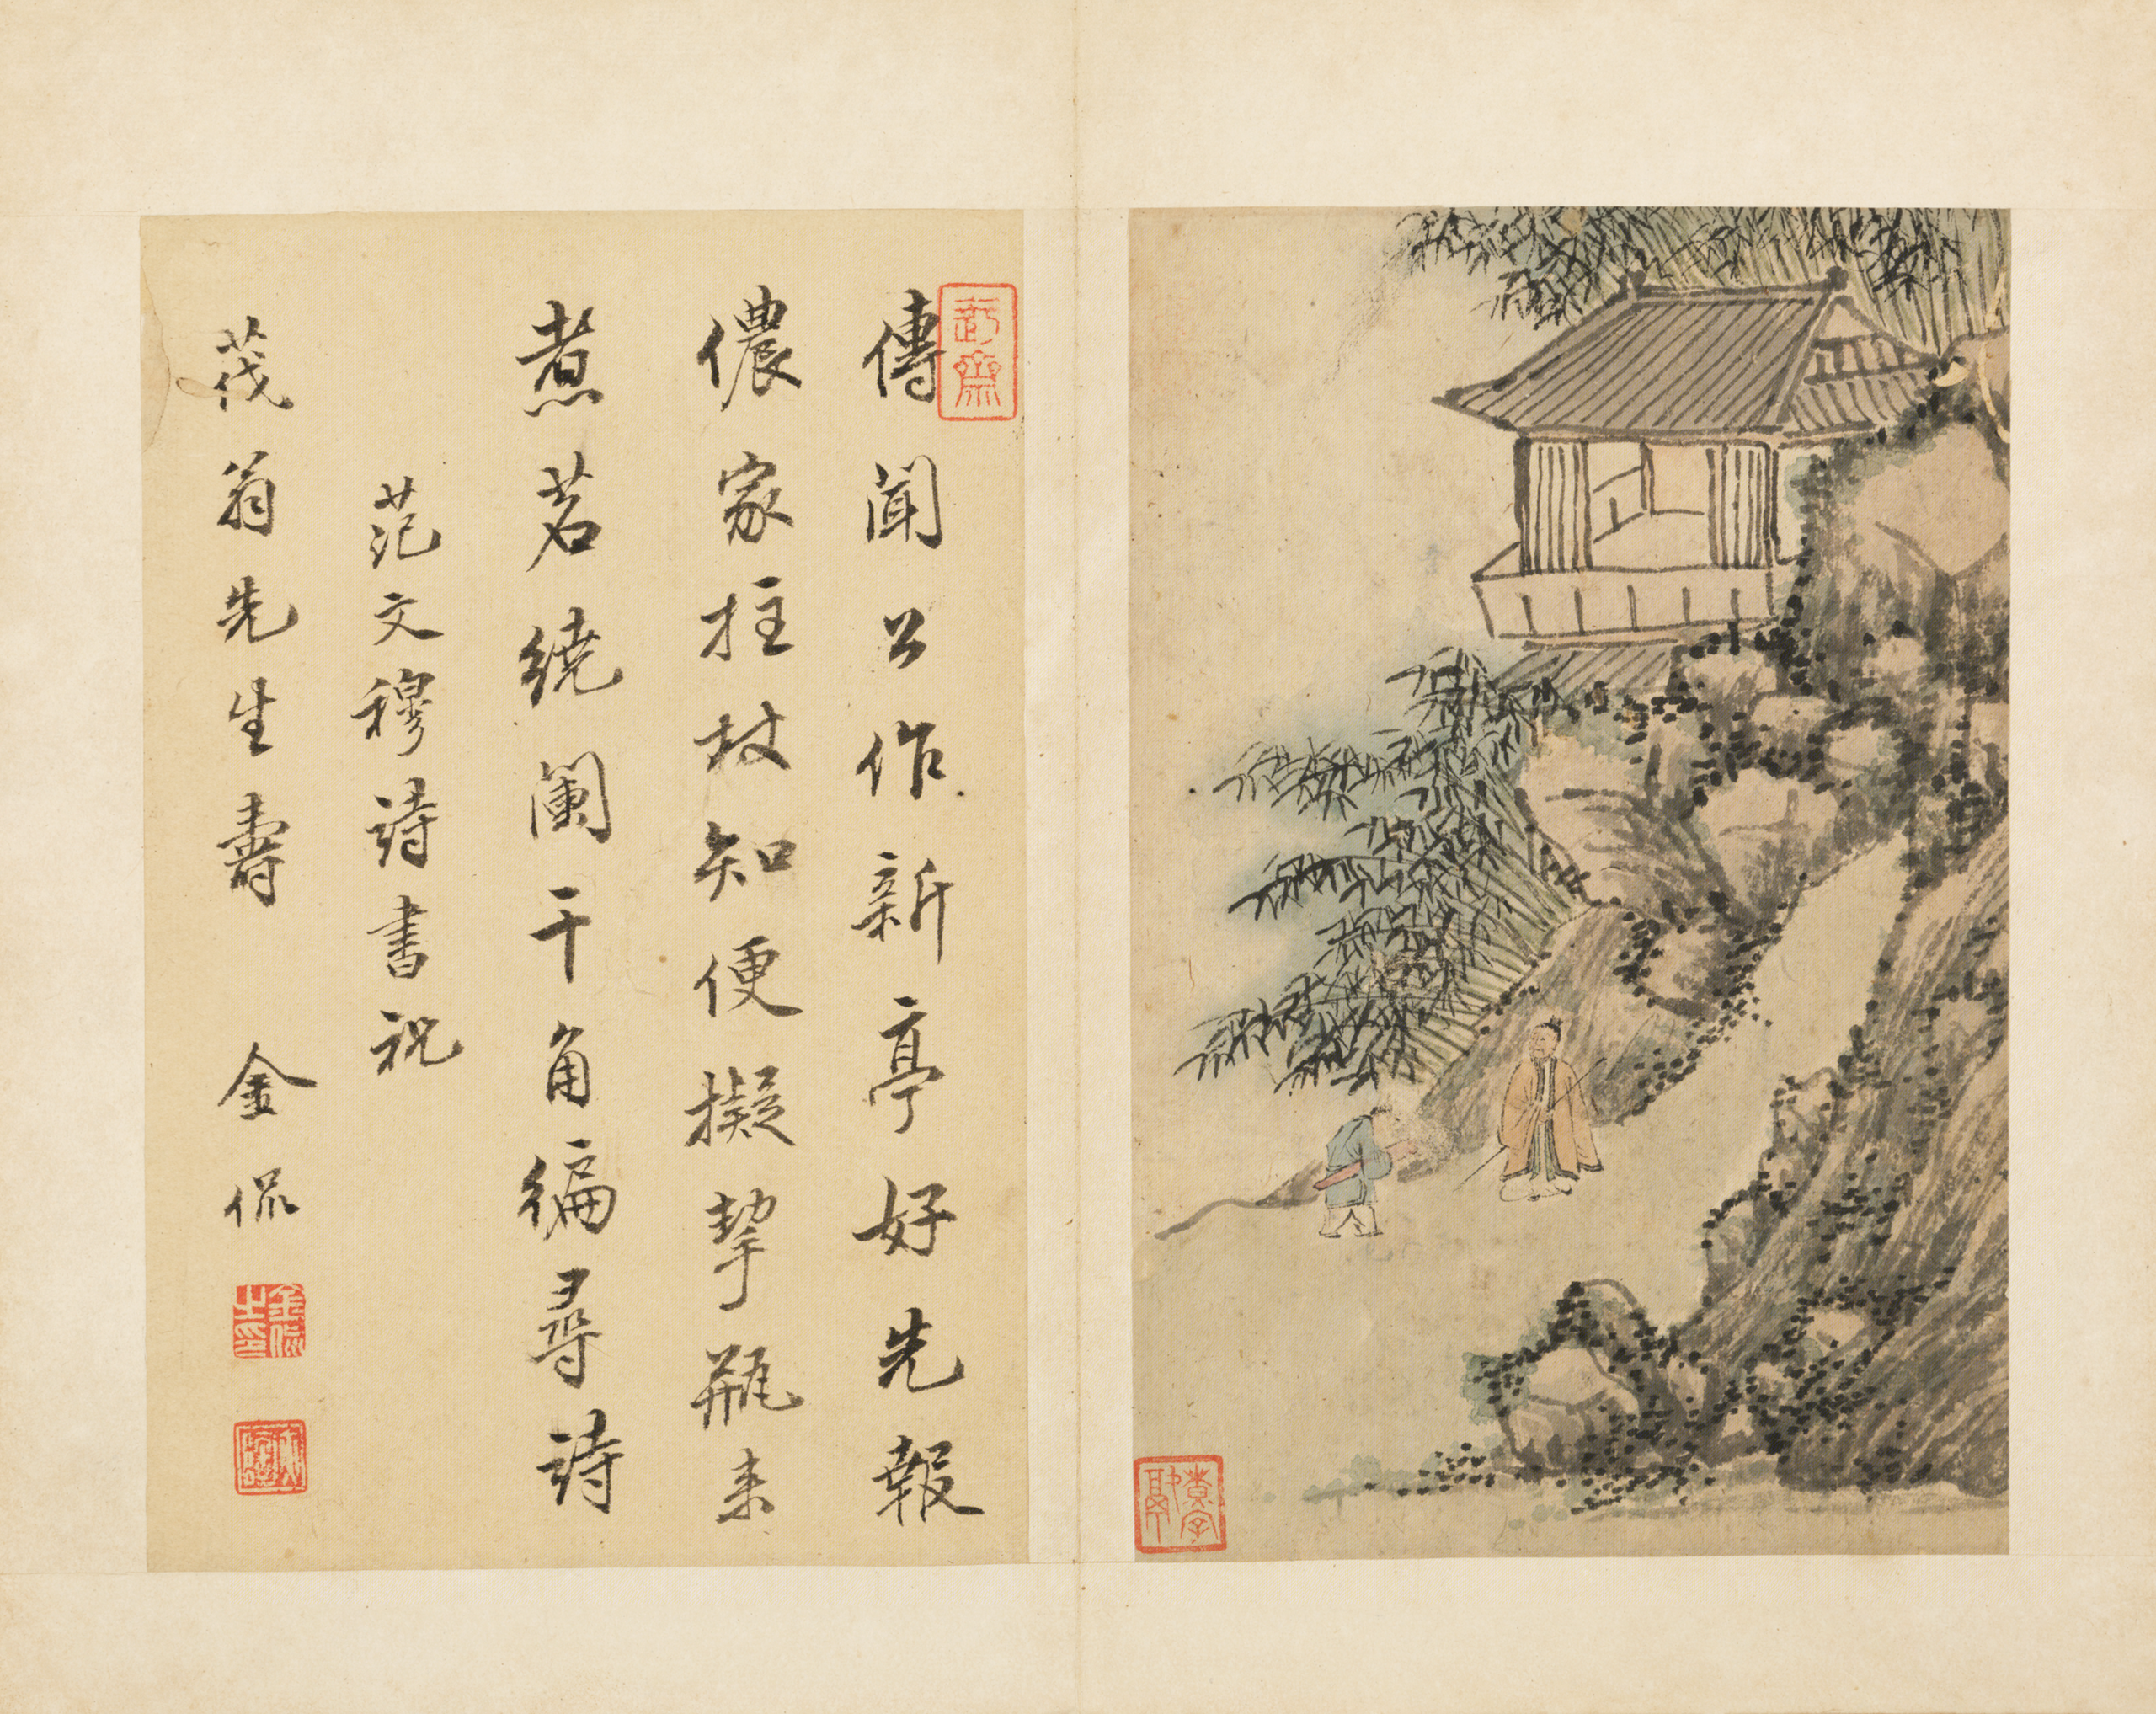 傳聞公作新亭好先報
儂家拄杖知便擬挈瓶来
煮茗繞闌干角徧尋詩
范文穆詩書祝
茂翁先生壽 金侃
金侃之印